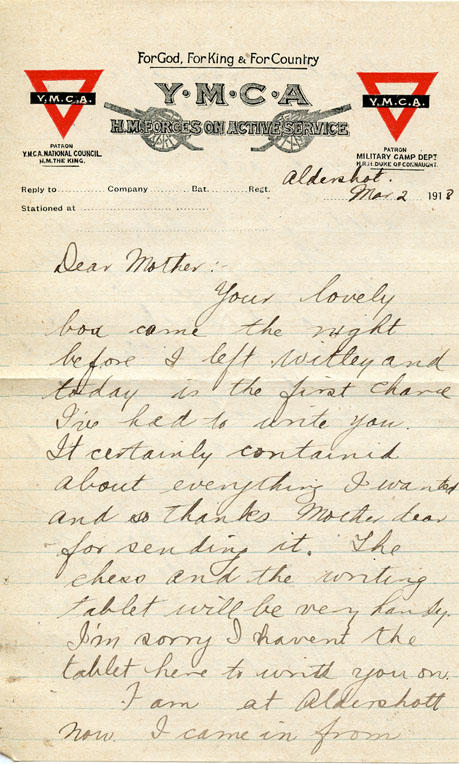 For God, For King & For Country
Y·M·C·A
H.M. FORCES ON ACTIVE SERVICE
Y.M.C.A.
PATRON
Y.M.C.A. NATIONAL COUNCIL.
H.M. THE KING.
Y.M.C.A.
PATRON
MILITARY CAMP DEPT
H.R.H. DUKE OF CONNAUGHT.
Reply to.......... Company.......... Bat.......... Regt.
Aldershot.
Mar 2 1918
Stationed at
Dear Mother:-
Your lovely
box came the night
before I left Witley and
today is the first chance
I've had to write you.
It certainly contained
about everything I wanted
and so thanks Mother dear
for sending it. The
chess and the writing
tablet will be very handy.
I'm sorry I havent the
tablet here to write you on.
I am at Aldershott
now. I came in from